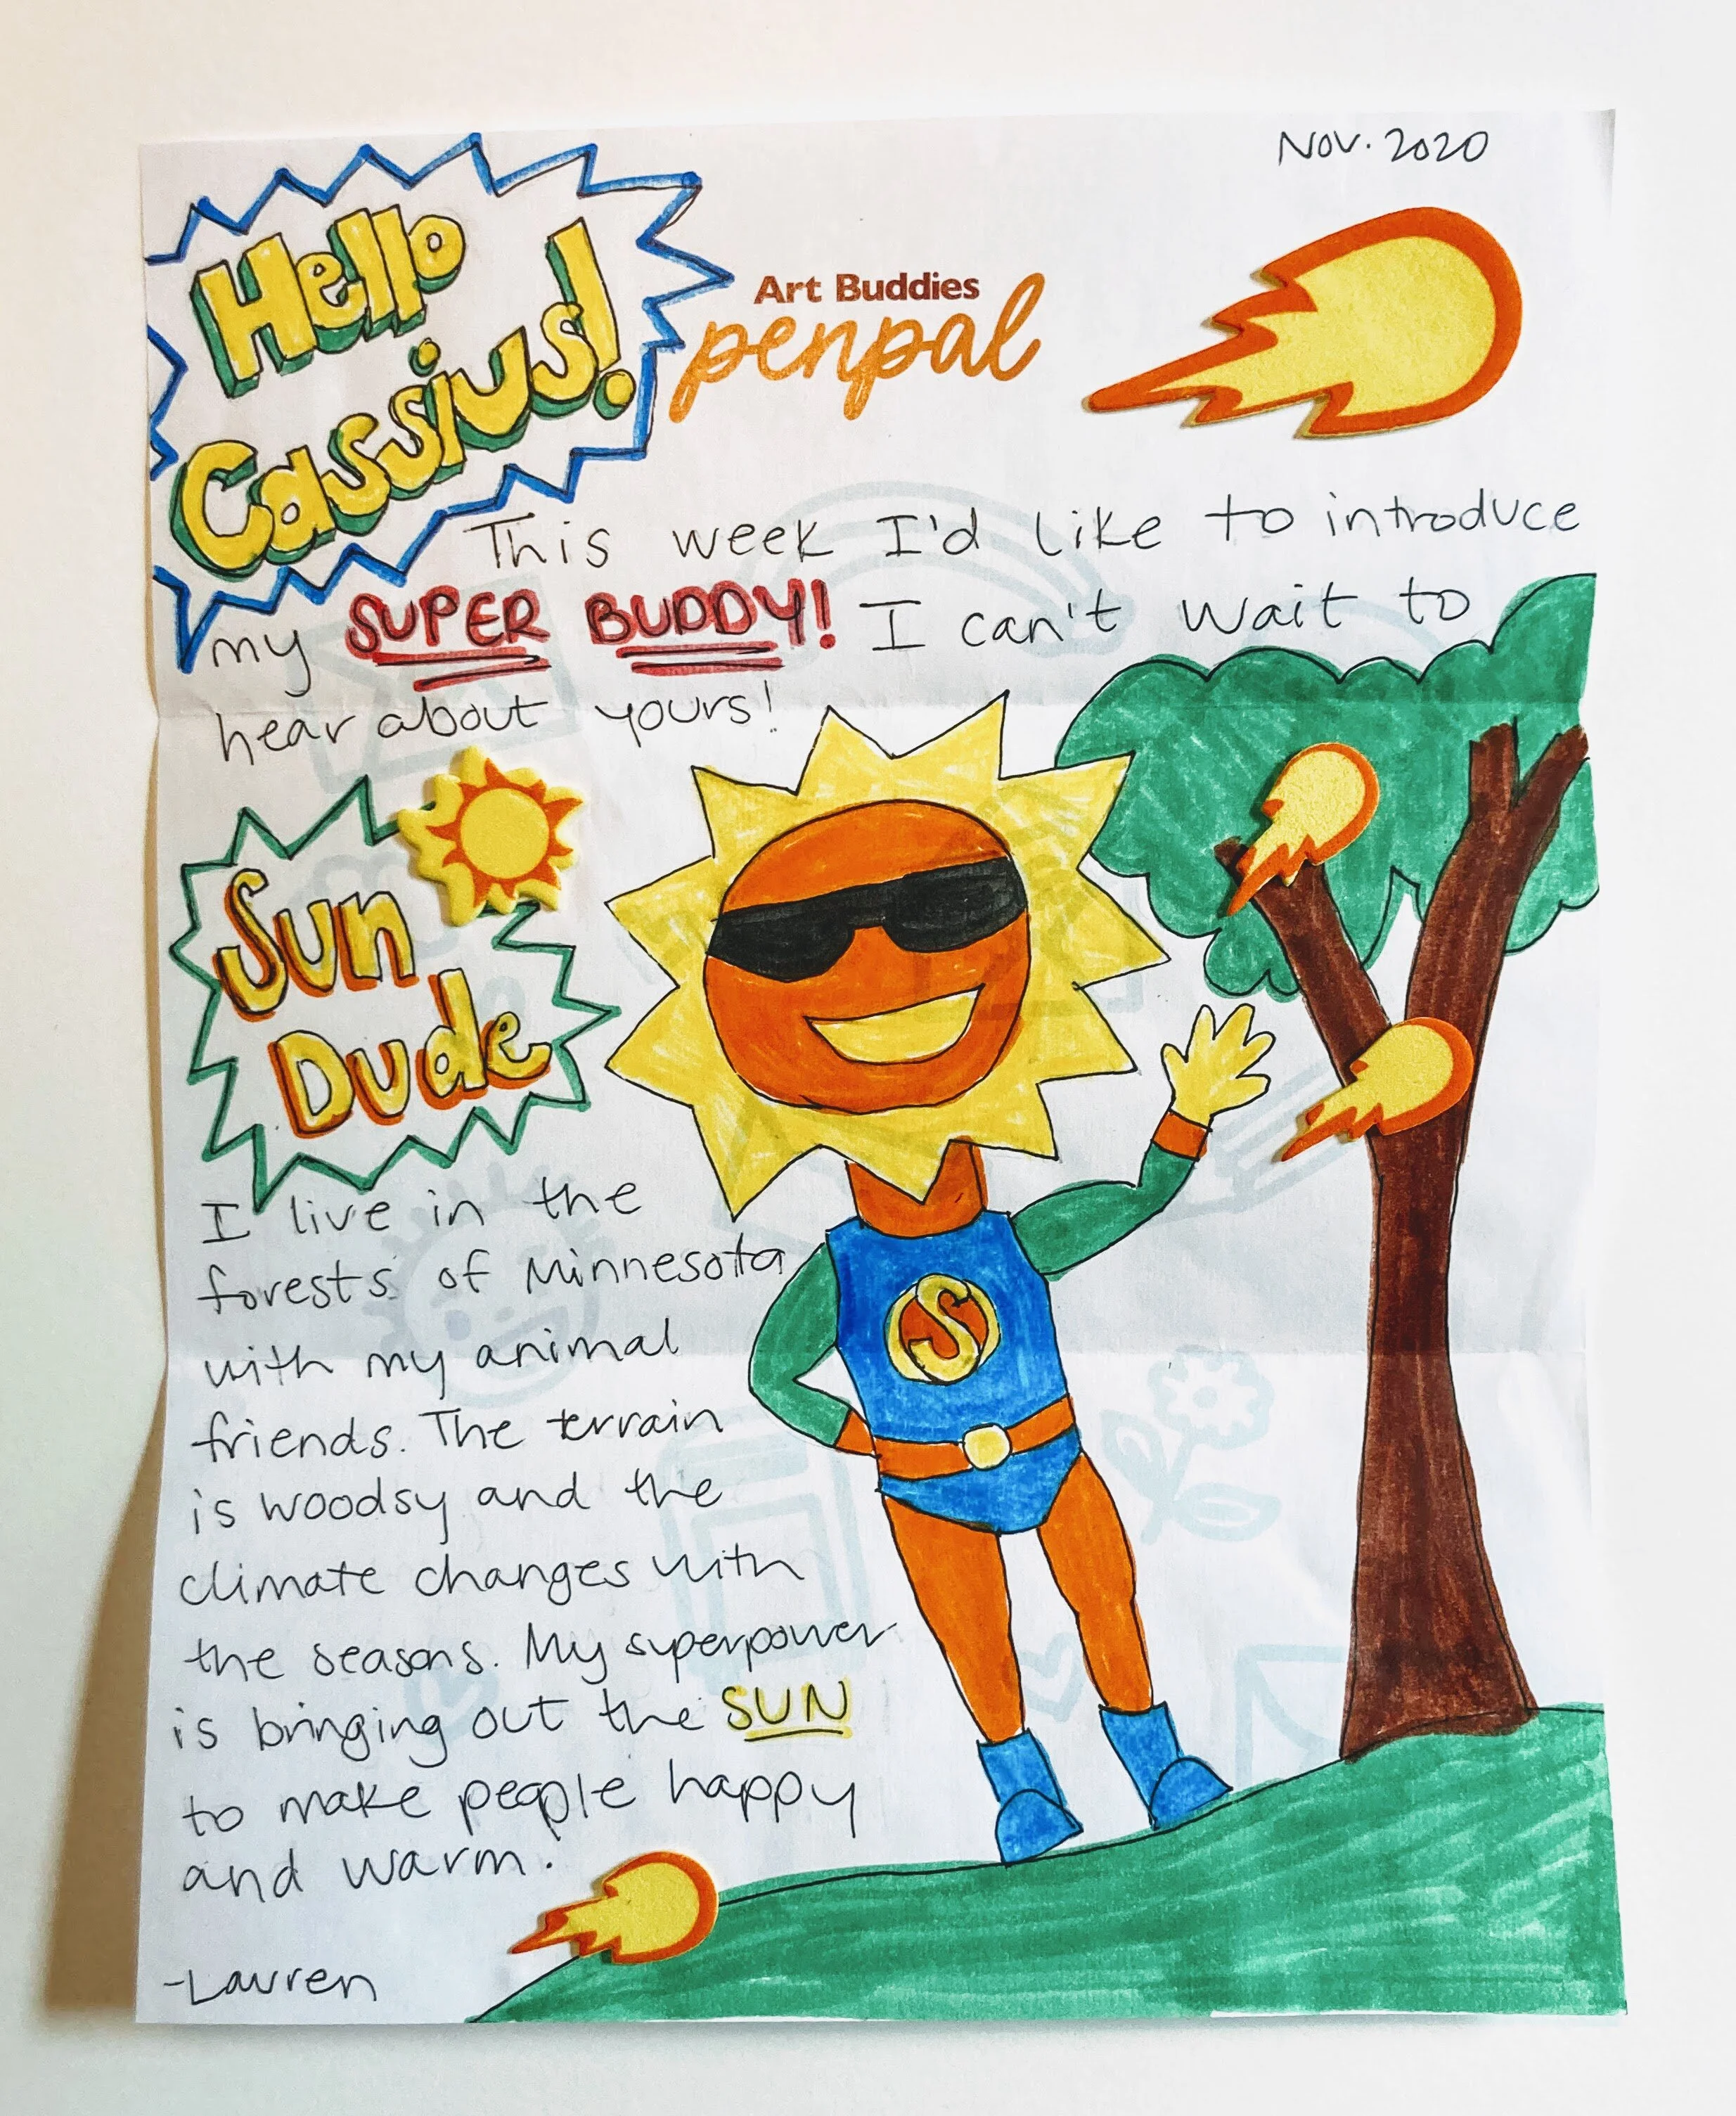 Nov. 2020
Hello
Cassius!
Art Buddies
penpal
This week I'd like to introduce
my SUPER BUDDY! I can't wait to
hear about yours!
Sun
Dude
I live in the
forests of Minnesota
with my animal
friends. The terrain
is woodsy and the
climate changes with
the seasons. My superpower
is bringing out the SUN
to make people happy
and warm.
S
-Lauren